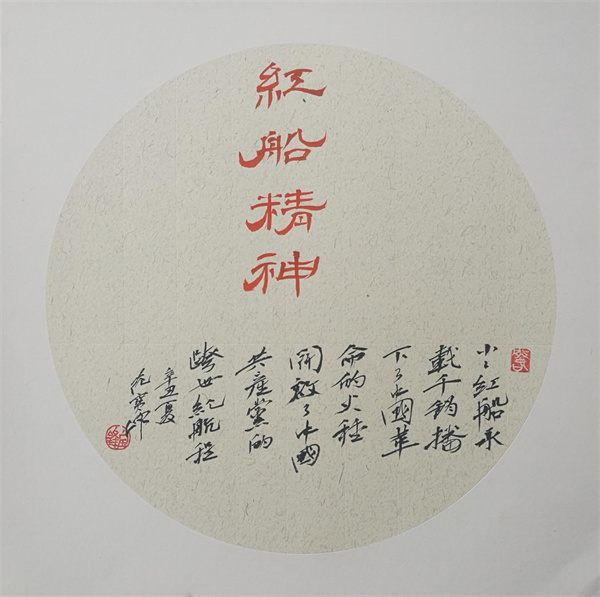 紅船精神
小々紅船承
載千鈞播
下了中國革
命的火種
開啟了中國
共產黨的
跨世紀航程
辛丑夏